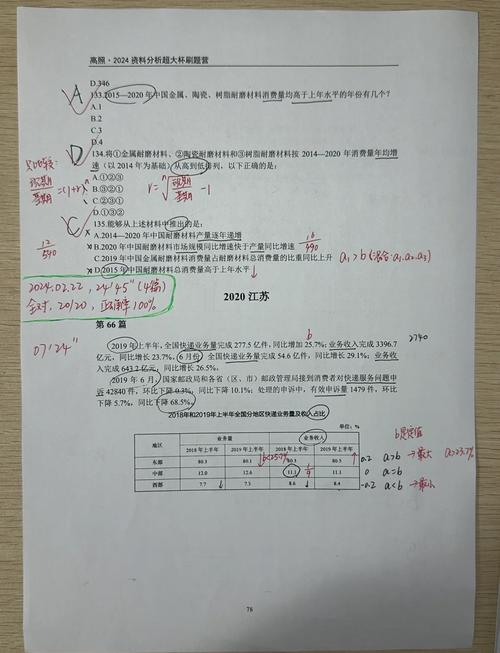 高照·2024 资料分析超大杯刷题营
D.346
A
133.2015—2020年中国金属、陶瓷、树脂耐磨材料消费量均高于上年水平的年份有几个？
A.1
B.2
C.3
D.4
D
134.将①金属耐磨材料、②陶瓷耐磨材料和③树脂耐磨材料按 2014—2020 年消费量年均增
速（以 2014 年为基础）从高到低排列，以下正确的是：
A.①②③
B.③②①
C.②③①
D.①③②
现期
基期
=(1+r)
r=
现期
基期
-1
C
135.能够从上述材料中推出的是：
A.2014—2020 年中国耐磨材料产量逐年递增
B.2020 年中国耐磨材料市场规模同比增速快于产量同比增速
C.2019 年中国金属耐磨材料消费量占耐磨材料总消费量的比重同比上升
D.2015 年中国耐磨材料总消费量高于上年水平
2024.02.22, 24'45" (4篇)
全对, 20/20, 正确率100%
2020 江苏
07'24"
第 66 篇
b
2019 年上半年，全国快递业务量完成 277.5 亿件，同比增长 25.7%；业务收入完成 3396.7
2740
亿元，同比增长 23.7%。6 月份，全国快递业务量完成 54.6 亿件，同比增长 29.1%；业务收
入完成 643.2 亿元，同比增长 26.5%。
2019 年 6 月，国家邮政局和各省（区、市）邮政管理局接到消费者对快递服务问题申
诉 42840 件，环比下降 0.3%，同比下降 10.1%；处理的申诉中，有效申诉量 1479 件，环比
下降 5.7%，同比下降 68.5%。
2018年和2019上半年全国分地区快递业务量及收入占比
单位：%
b是定值
地区 业务量 业务收入
2018 年上半年 2019 年上半年 2018 年上半年 2019 年上半年
东部 80.3 80.1 80.3 80.5 0.2 a>b →最大 a>23.7%
中部 12.0 12.6 11.1 11.1 0 a=b
西部 7.7 7.3 8.6 8.4 -0.2 a<b →最小
78